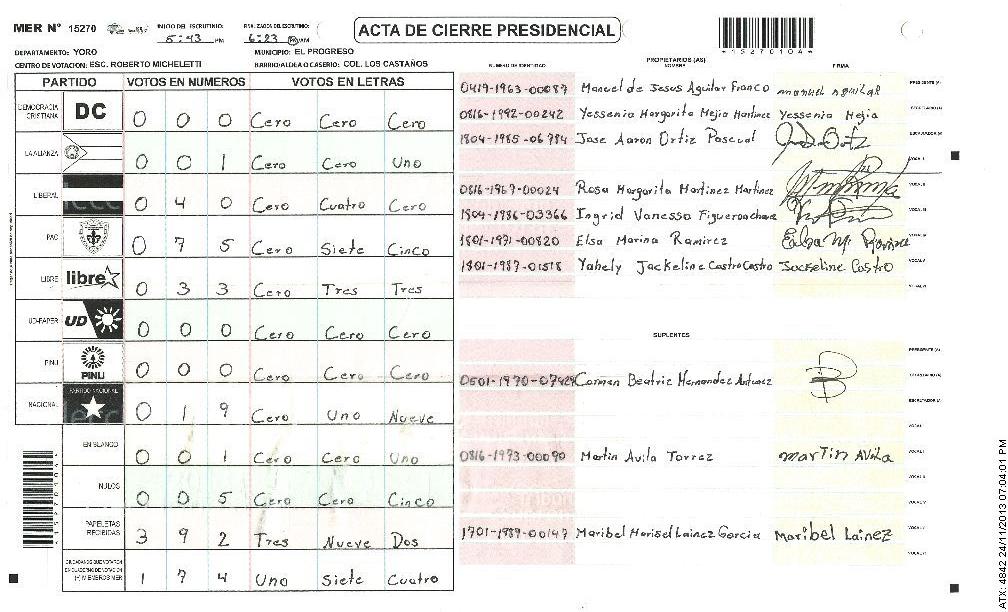 MER Nº 15270
INICIO DEL ESCRUTINIO: 5:43 PM
FINALIZACION DEL ESCRUTINIO: 6:23 PM AM
ACTA DE CIERRE PRESIDENCIAL
*15270104*
DEPARTAMENTO: YORO
MUNICIPIO: EL PROGRESO
CENTRO DE VOTACION: ESC. ROBERTO MICHELETTI
BARRIO/ALDEA O CASERIO: COL. LOS CASTAÑOS
PARTIDO VOTOS EN NUMEROS VOTOS EN LETRAS
DEMOCRACIA CRISTIANA DC 0 0 0 Cero Cero Cero
LA ALIANZA 0 0 1 Cero Cero Uno
LIBERAL 0 4 0 Cero Cuatro Cero
PAC 0 7 5 Cero Siete Cinco
LIBRE libre 0 3 3 Cero Tres Tres
UD-FAPER UD 0 0 0 Cero Cero Cero
PINU PINU 0 0 0 Cero Cero Cero
NACIONAL PARTIDO NACIONAL 0 1 9 Cero Uno Nueve
EN BLANCO 0 0 1 Cero Cero Uno
NULOS 0 0 5 Cero Cero Cinco
PAPELETAS RECIBIDAS 3 9 2 Tres Nueve Dos
CIUDADANOS QUE VOTARON EN CUADERNO DE VOTACION (+) MIEMBROS MER 1 7 4 Uno Siete Cuatro
PROPIETARIOS (AS)
NUMERO DE IDENTIDAD NOMBRE FIRMA
0419-1963-00087 Manuel de Jesus Aguilar Franco manuel aguilar PRESIDENTE (A)
0816-1992-00242 Yessenia Margarita Mejia Martinez Yessenia Mejia SECRETARIO (A)
1804-1985-06784 Jose Aaron Ortiz Pascual ESCRUTADOR (A)
VOCAL I
0816-1967-00024 Rosa Margarita Martinez Martinez VOCAL II
1804-1986-03366 Ingrid Vanessa Figueroa VOCAL III
1801-1971-00820 Elsa Marina Ramirez Elsa M. Ramirez VOCAL IV
1801-1987-01518 Yahely Jackeline Castro Castro Jackeline Castro VOCAL V
VOCAL VI
SUPLENTES
PRESIDENTE (A)
0501-1970-07429 Carmen Beatriz Hernandez SECRETARIO (A)
ESCRUTADOR (A)
VOCAL I
0816-1973-00090 Martin Avila Torrez martin Avila VOCAL II
VOCAL III
VOCAL IV
1701-1989-00147 Maribel Marisel Lainez Garcia Maribel Lainez VOCAL V
VOCAL VI
ATX: 4842 24/11/2013 07:04:01 PM